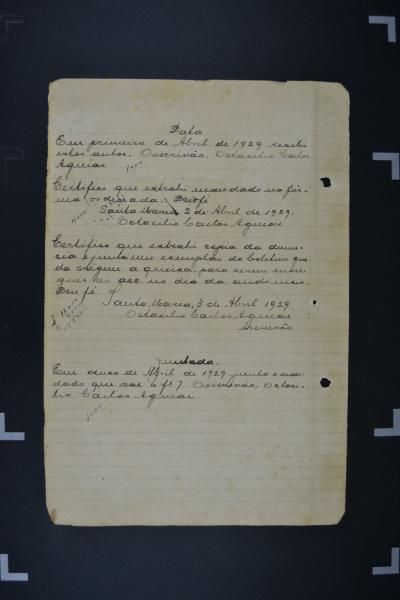 Data
Em primeiro de Abril de 1929 recebi
estes autos. O escrivão, Octacilio Carlos
Aguiar
Certifico que extrahi mandado na fór-
ma ordenada. Dou fé
Santa Maria 2 de Abril de 1929.
Octacilio Carlos Aguiar
Certifico que extrahi copia da denun-
cia e juntei um exemplar do boletim que
da origem a queixa, para serem entre-
gues ao acc. no dia da audiencia.
Dou fé.
Santa Maria, 3 de Abril 1929
Octacilio Carlos Aguiar
escrivão
Juntada.
Em doze de Abril de 1929 junto o man-
dado que vae a fs 7. O escrivão, Octaci-
lio Carlos Aguiar